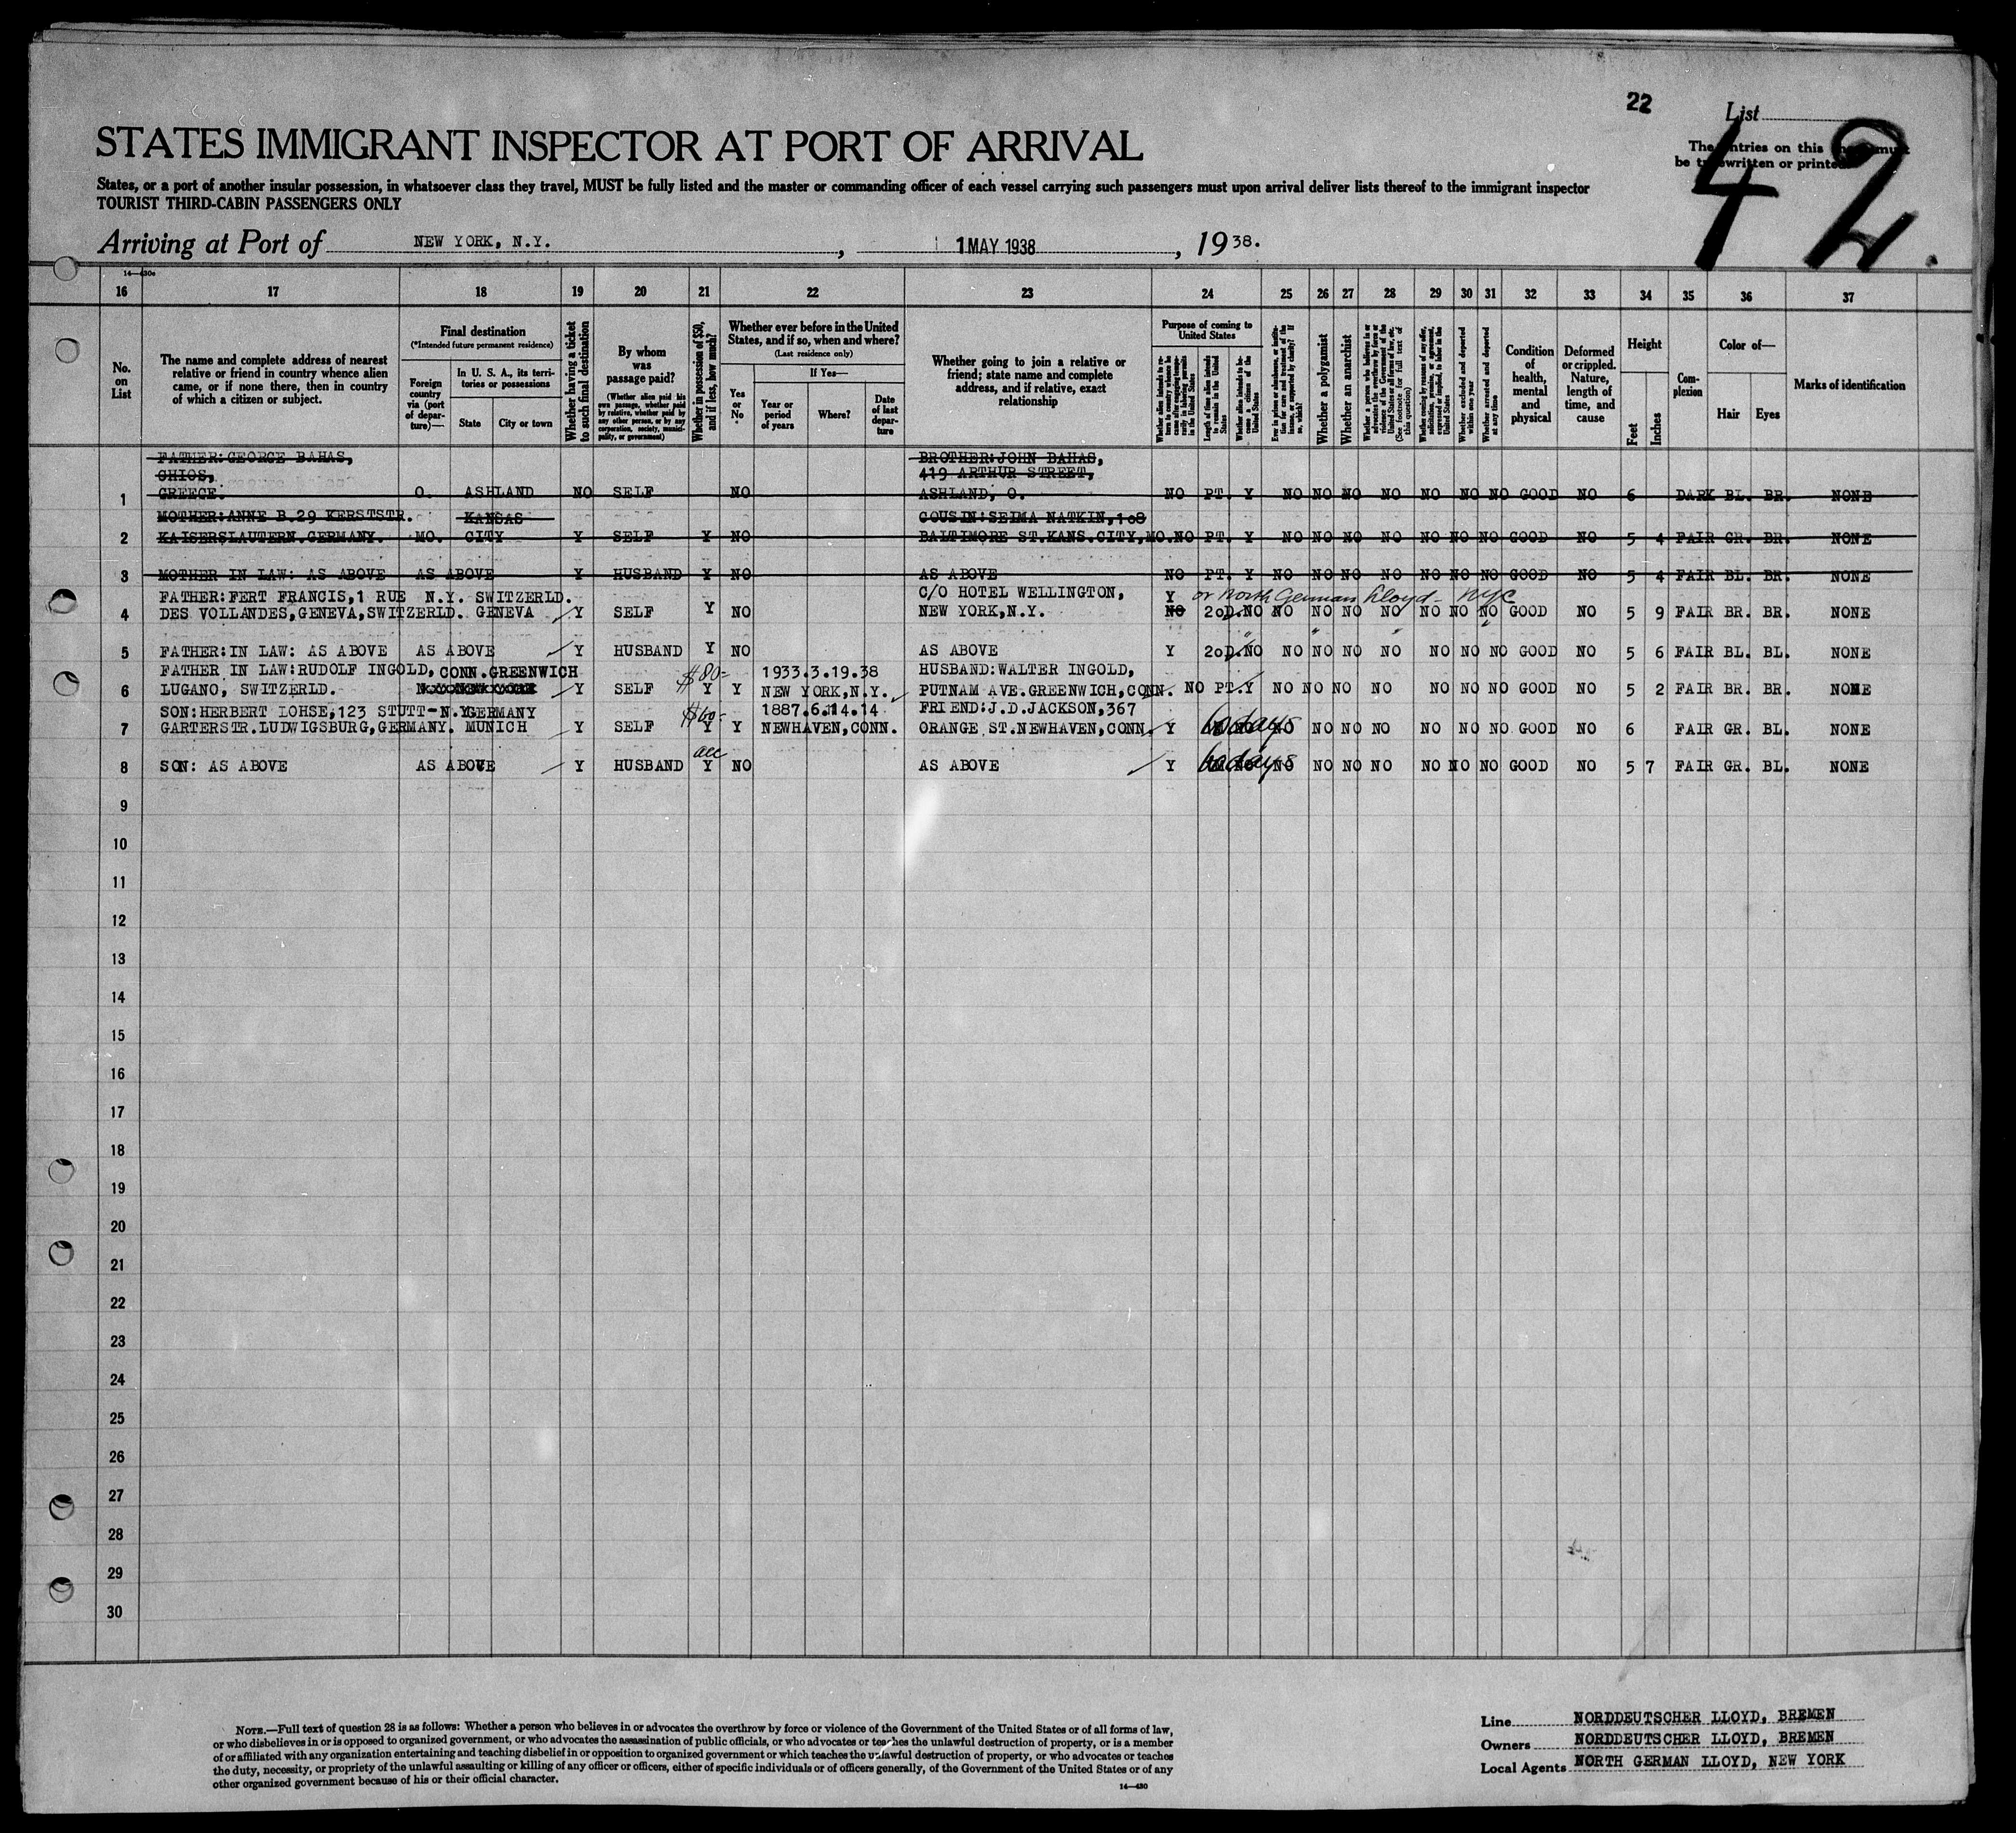 22
List
42.
STATES IMMIGRANT INSPECTOR AT PORT OF ARRIVAL
The entries on this must
be typewritten or printed
States, or a port of another insular possession, in whatsoever class they travel, MUST be fully listed and the master or commanding officer of each vessel carrying such passengers must upon arrival deliver lists thereof to the immigrant inspector
TOURIST THIRD-CABIN PASSENGERS ONLY
Arriving at Port of NEW YORK, N.Y. , 1 MAY 1938 , 1938.
16 17 18 19 20 21 22 23 24 25 26 27 28 29 30 31 32 33 34 35 36 37
No. on List
The name and complete address of nearest relative or friend in country whence alien came, or if none there, then in country of which a citizen or subject.
Final destination
(*Intended future permanent residence)
Foreign country via (port of departure)—
In U. S. A., its territories or possessions
State
City or town
Whether having a ticket to such final destination
By whom was passage paid?
(Whether alien paid his own passage, whether paid by relative, whether paid by any other person, or by any corporation, society, municipality, or government)
Whether in possession of $50, and if less, how much?
Whether ever before in the United States, and if so, when and where?
(Last residence only)
Yes or No
If Yes—
Year or period of years
Where?
Date of last departure
Whether going to join a relative or friend; state name and complete address, and if relative, exact relationship
Purpose of coming to United States
Length of time alien intends to remain in the United States
Whether alien intends to become a citizen of the United States
Whether a polygamist
Whether an anarchist
Whether excluded and deported within one year
Whether arrested and deported at any time
Condition of health, mental and physical
Deformed or crippled. Nature, length of time, and cause
Height
Feet
Inches
Complexion
Color of—
Hair
Eyes
Marks of identification
FATHER:GEORGE BAHAS, BROTHER:JOHN BAHAS,
CHIOS, 419 ARTHUR STREET,
1 GREECE. O. ASHLAND NO SELF NO ASHLAND, O. NO PT. Y NO NO NO NO NO NO NO GOOD NO 6 DARK BL. BR. NONE
MOTHER:ANNE B.29 KERSTSTR. KANSAS COUSIN:SEIMA NATKIN,108
2 KAISERSLAUTERN.GERMANY. MO. CITY Y SELF Y NO BALTIMORE ST.KANS.CITY,MO. NO PT. Y NO NO NO NO NO NO NO GOOD NO 5 4 FAIR GR. BR. NONE
3 MOTHER IN LAW: AS ABOVE AS ABOVE Y HUSBAND Y NO AS ABOVE NO PT. Y NO NO NO NO NO NO NO GOOD NO 5 4 FAIR BL. BR. NONE
FATHER:FERT FRANCIS,1 RUE N.Y. SWITZERLD. C/O HOTEL WELLINGTON, Y or North German Lloyd - NYC
4 DES VOLLANDES,GENEVA,SWITZERLD. GENEVA Y SELF Y NO NEW YORK,N.Y. NO 20D. NO NO NO NO NO NO NO NO GOOD NO 5 9 FAIR BR. BR. NONE
5 FATHER:IN LAW: AS ABOVE AS ABOVE Y HUSBAND Y NO AS ABOVE Y 20D. NO NO NO NO NO NO NO NO GOOD NO 5 6 FAIR BL. BL. NONE
FATHER IN LAW:RUDOLF INGOLD, CONN.GREENWICH $80- 1933.3.19.38 HUSBAND:WALTER INGOLD,
6 LUGANO, SWITZERLD. Y SELF Y Y NEW YORK,N.Y. PUTNAM AVE.GREENWICH,CONN. NO PT. Y NO NO NO NO NO NO NO GOOD NO 5 2 FAIR BR. BR. NONE
SON:HERBERT LOHSE,123 STUTT- N.Y.GERMANY $60- 1887.6.14.14 FRIEND:J.D.JACKSON,367
7 GARTERSTR.LUDWIGSBURG,GERMANY. MUNICH Y SELF Y Y NEWHAVEN,CONN. ORANGE ST.NEWHAVEN,CONN. Y 60 days NO NO NO NO NO NO NO GOOD NO 6 FAIR GR. BL. NONE
acc
8 SON: AS ABOVE AS ABOVE Y HUSBAND Y NO AS ABOVE Y 60 days NO NO NO NO NO NO NO GOOD NO 5 7 FAIR GR. BL. NONE
9
10
11
12
13
14
15
16
17
18
19
20
21
22
23
24
25
26
27
28
29
30
NOTE.—Full text of question 28 is as follows: Whether a person who believes in or advocates the overthrow by force or violence of the Government of the United States or of all forms of law,
or who disbelieves in or is opposed to organized government, or who advocates the assassination of public officials, or who advocates or teaches the unlawful destruction of property, or is a member
of or affiliated with any organization entertaining and teaching disbelief in or opposition to organized government or which teaches the unlawful destruction of property, or who advocates or teaches
the duty, necessity, or propriety of the unlawful assaulting or killing of any officer or officers, either of specific individuals or of officers generally, of the Government of the United States or of any
other organized government because of his or their official character.
14—430
Line NORDDEUTSCHER LLOYD, BREMEN
Owners NORDDEUTSCHER LLOYD, BREMEN
Local Agents NORTH GERMAN LLOYD, NEW YORK